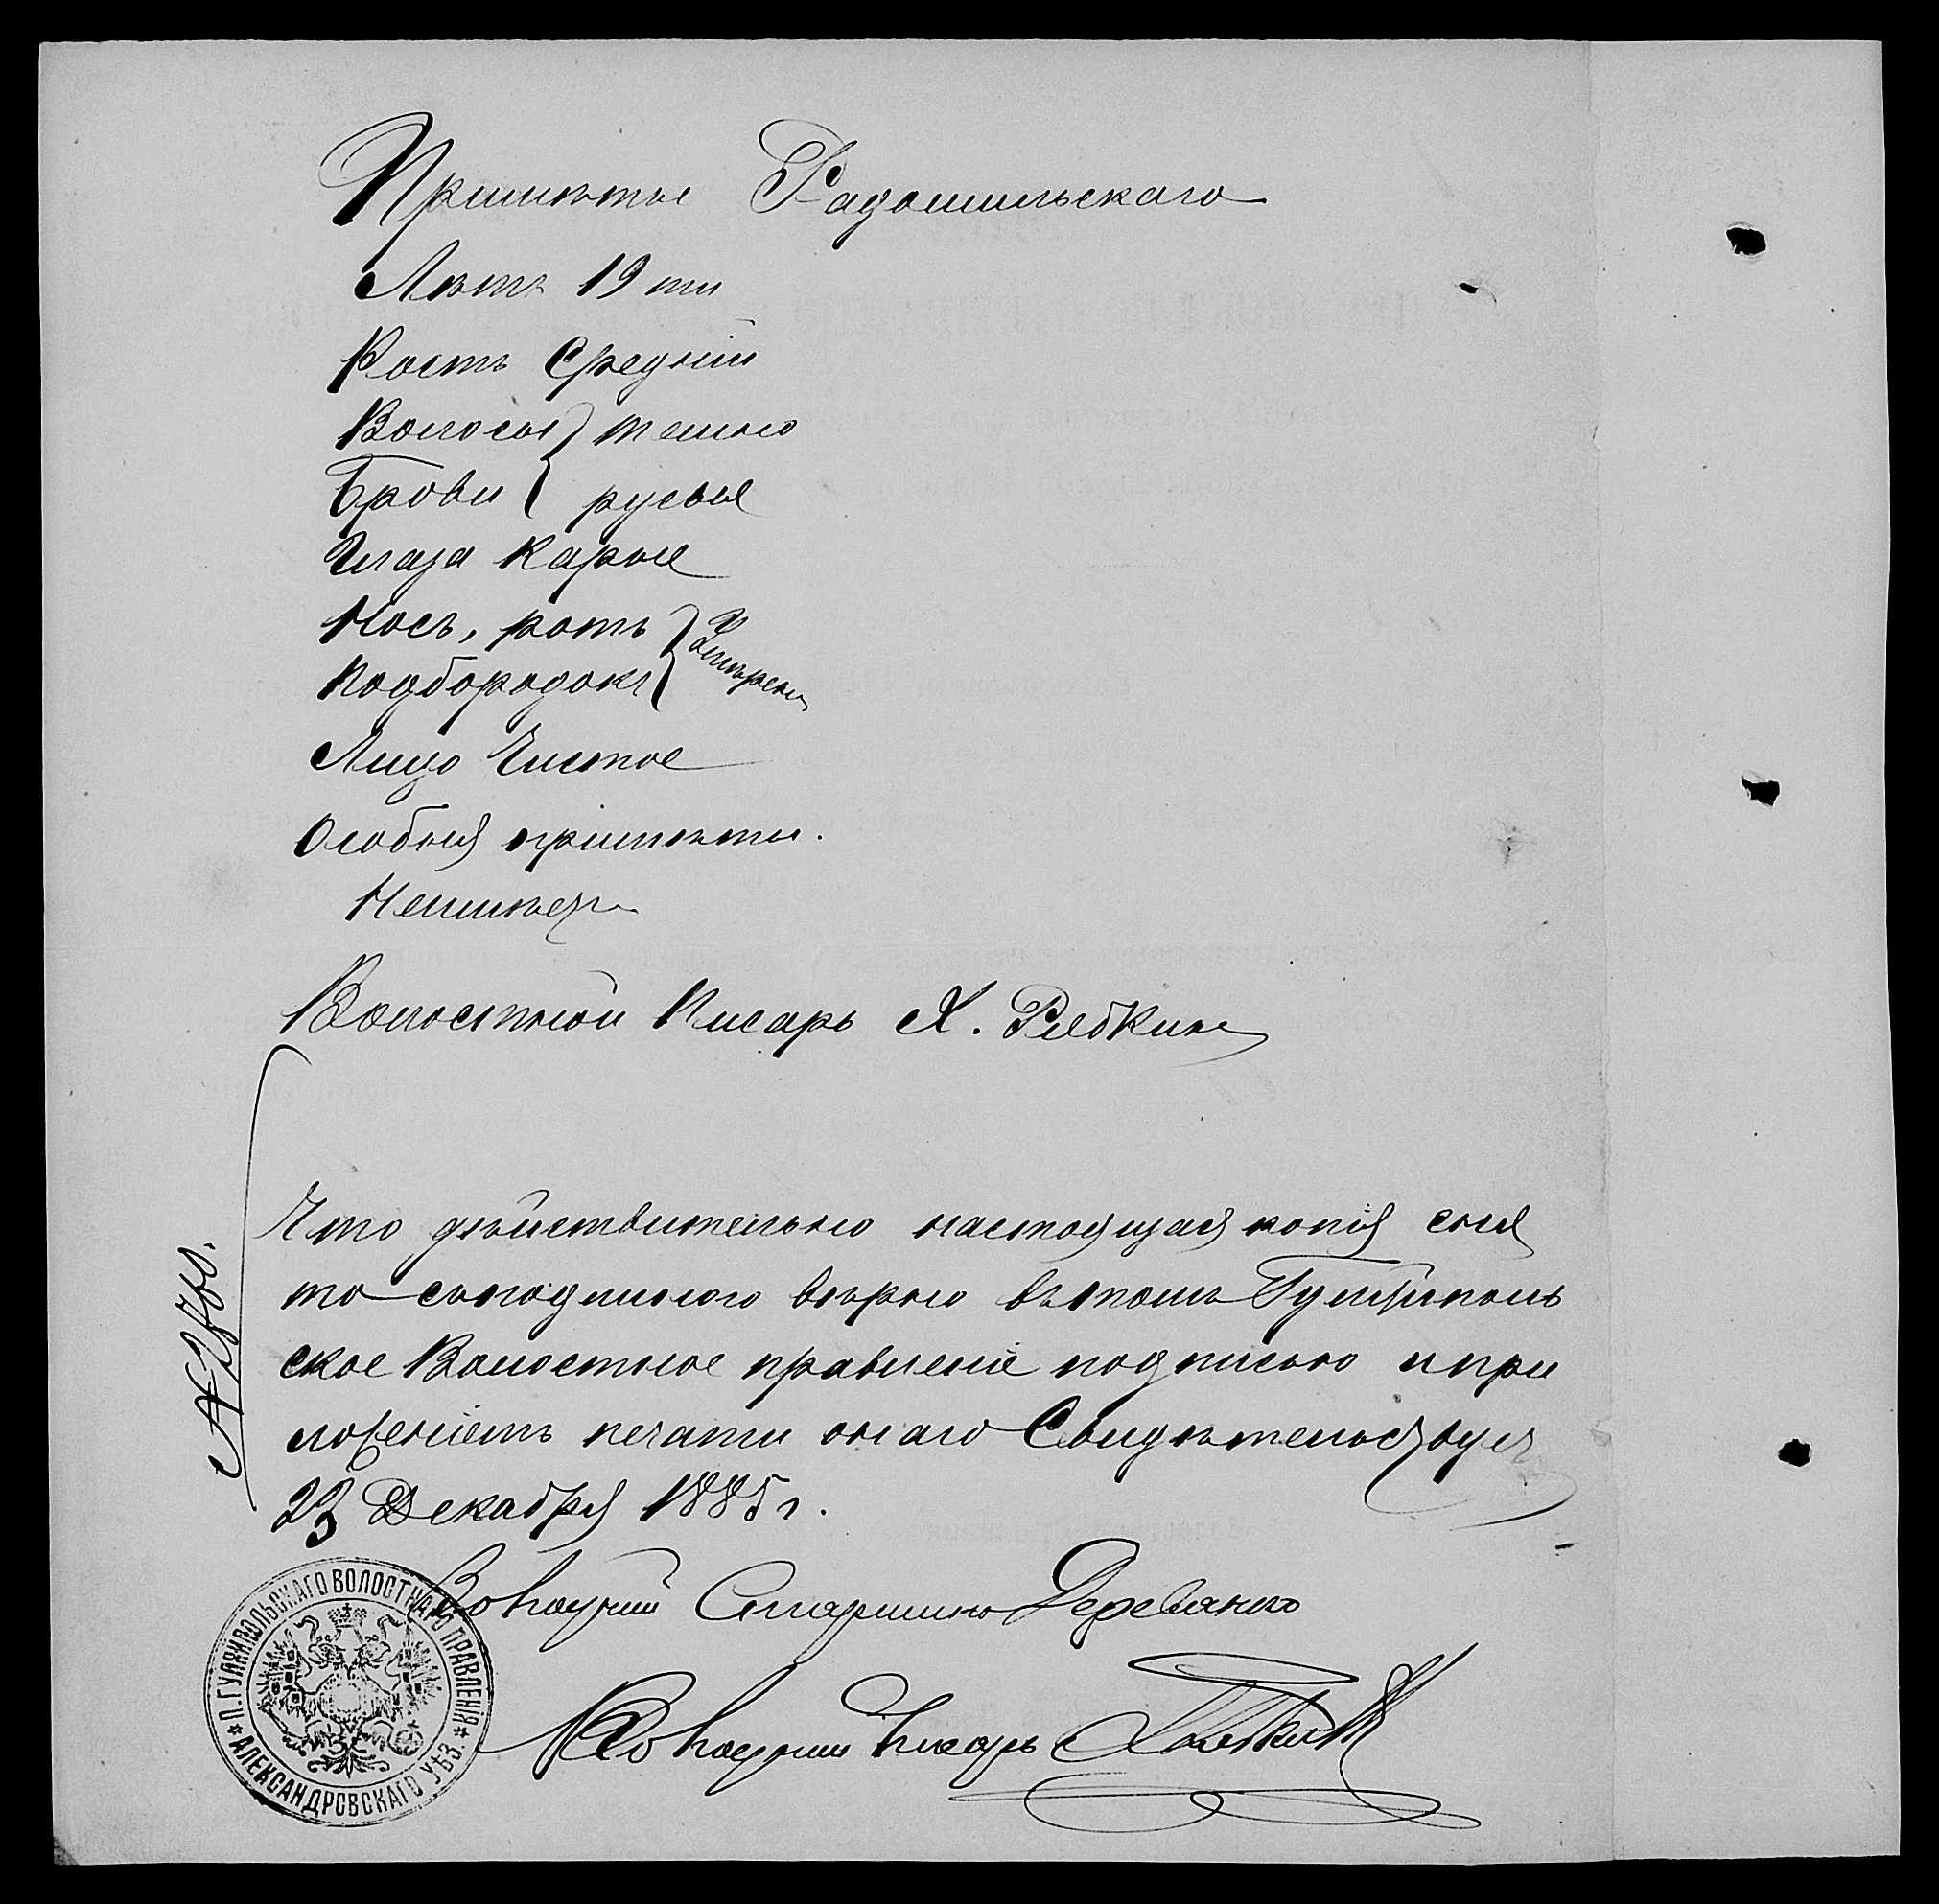 Примѣты Радомильскаго
Лѣтъ 19ти
Ростъ Средній
Волосы } темно
Брови } русые
Глаза Карые
Носъ, ротъ }
подбородокъ } Умѣрены
Лицо Чистое
Особыя примѣты.
Неимѣетъ
Волостной Писарь Х. Рябкинъ
Что дѣйствительно настоящая копія сня
та съподлиного вѣрно въ томъ Гуляйполь
ское Волостное правленіе подписью и при
ложеніемъ печати онаго Свидѣтельствуетъ
23 Декабря 1885 г.
Волостной Старшина
Волостной Писарь
П. ГУЛЯЙПОЛЬСКАГО ВОЛОСТНАГО ПРАВЛЕНІЯ
* АЛЕКСАНДРОВСКАГО УѢЗ. *